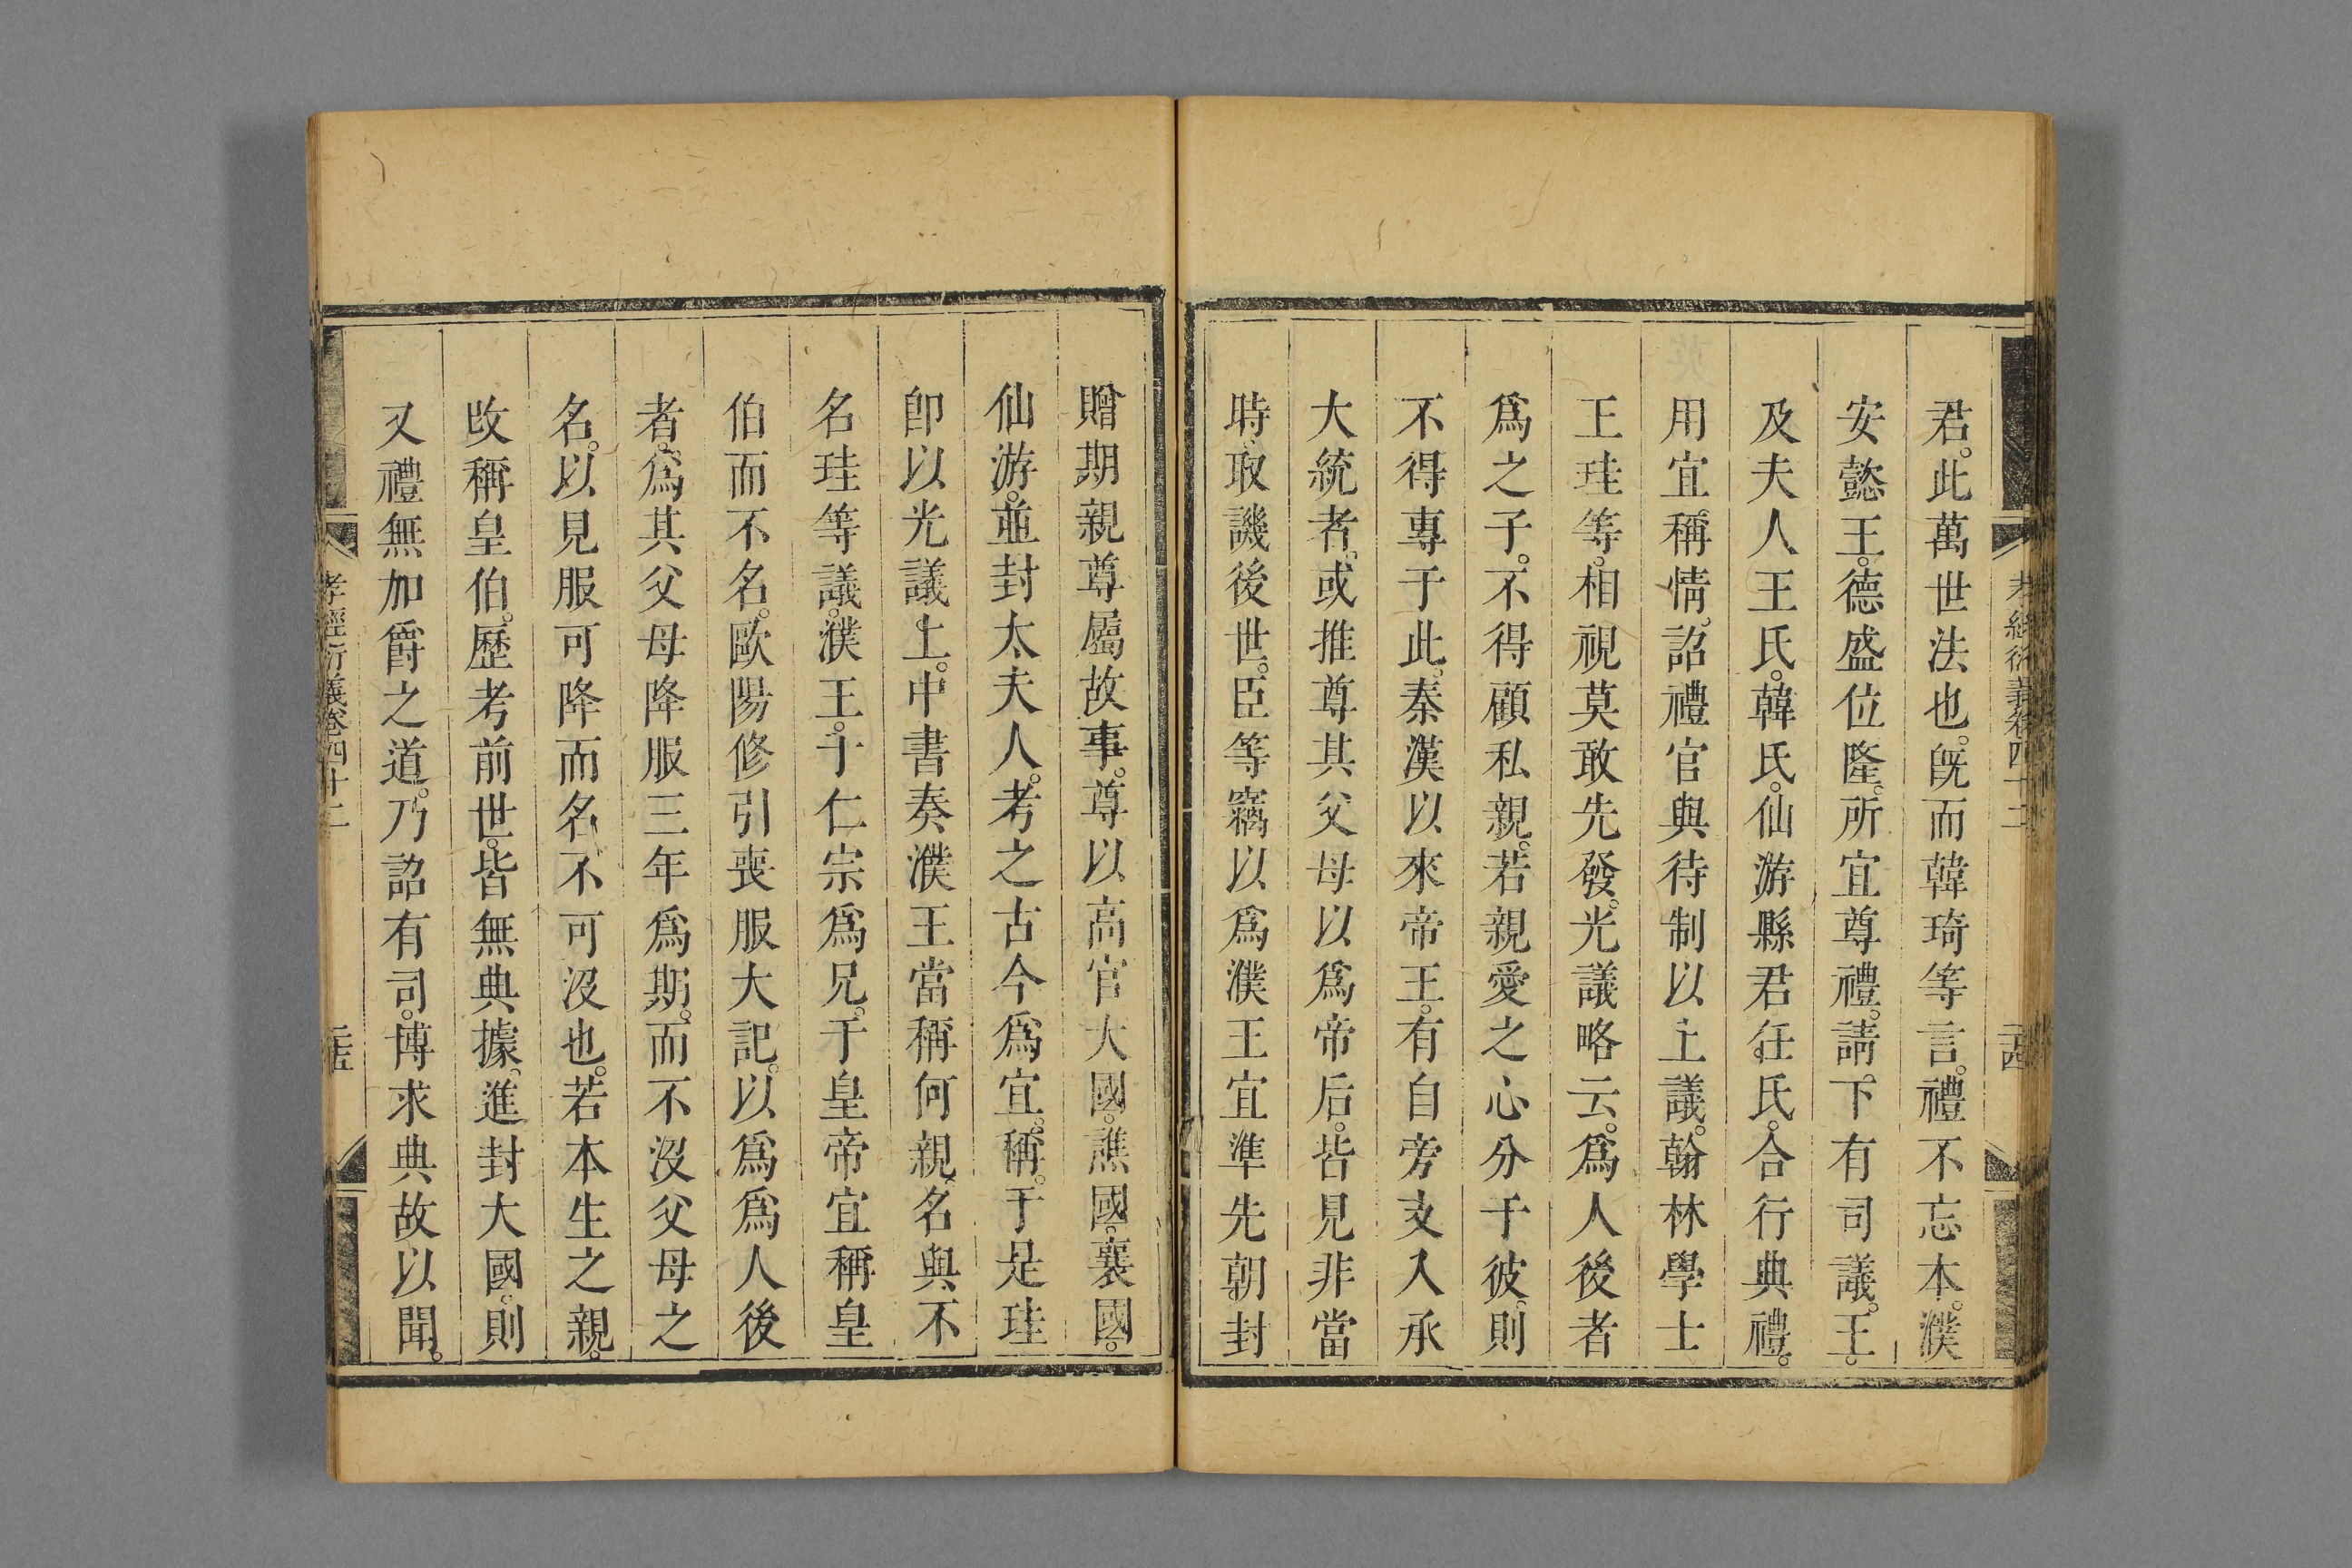 孝經衍義卷四十二
二十四
君。此萬世法也。既而韓琦等言。禮不忘本。濮
安懿王。德盛位隆。所宜尊禮。請下有司議。王。
及夫人王氏。韓氏。仙游縣君任氏。合行典禮。
用宜稱情。詔禮官與待制以上議。翰林學士
王珪等。相視莫敢先發。光議略云。爲人後者
爲之子。不得顧私親。若親愛之心分于彼。則
不得專于此。秦漢以來帝王。有自旁支入承
大統者。或推尊其父母以爲帝后。皆見非當
時。取譏後世。臣等竊以爲濮王宜準先朝封
贈期親尊屬故事。尊以高官大國。譙國。襄國。
仙游。並封太夫人。考之古今爲宜。稱。于是珪
卽以光議。上。中書奏濮王當稱何親。名與不
名珪等議。濮王。于仁宗爲兄。于皇帝宜稱皇
伯而不名。歐陽修引喪服大記。以爲爲人後
者。爲其父母降服三年爲期。而不沒父母之
名。以見服可降而名不可沒也。若本生之親。
改稱皇伯。歷考前世。皆無典據。進封大國。則
又禮無加爵之道。乃詔有司。博求典故以聞。
孝經衍義卷四十二
二十五